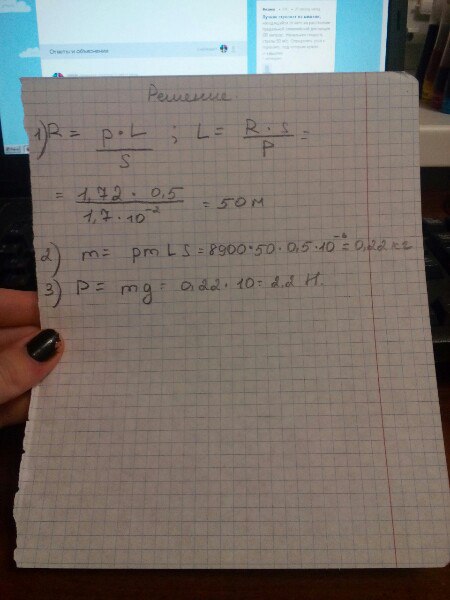 Ответы и объяснения
Решение
1) R = p·L / S ; L = R·s / p =
= 1,72 · 0,5 / 1,7 · 10⁻² = 50 м
2) m = pmLS = 8900·50·0,5·10⁻⁶ = 0,22 кг
3) P = mg = 0,22 · 10 = 2,2 Н.